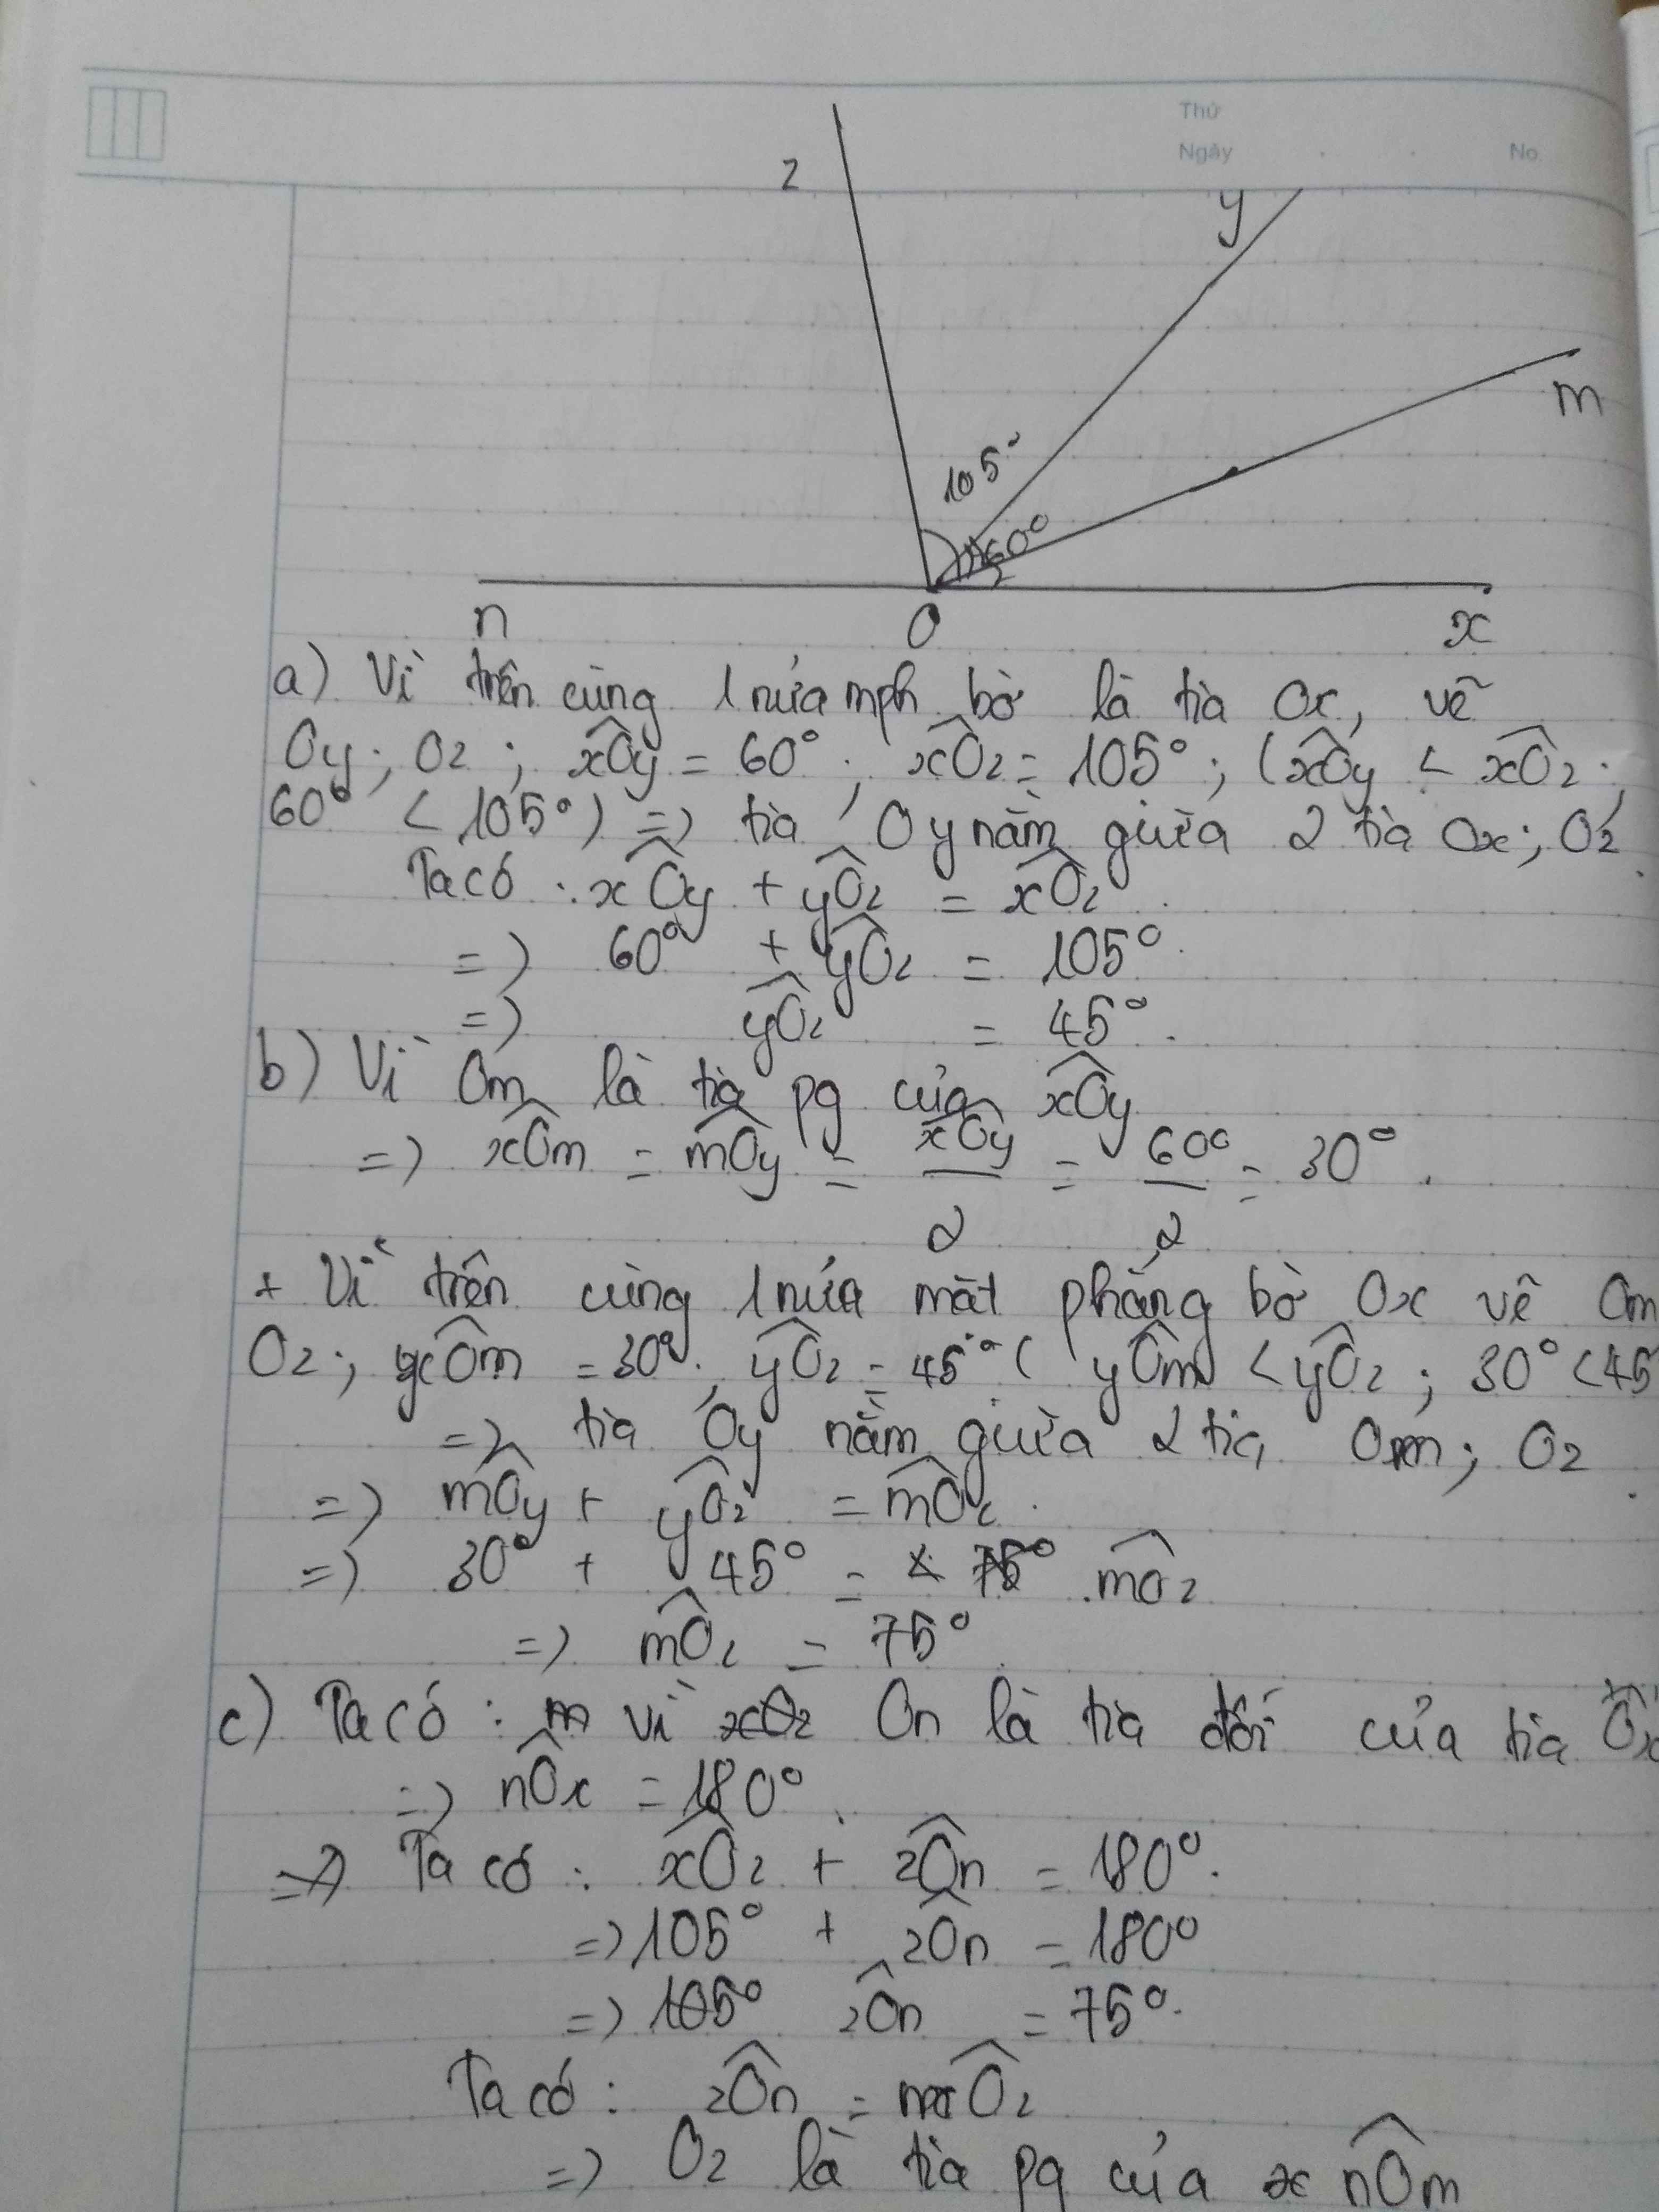 Thứ
Ngày . . No.
z
y
m
105°
60°
n O x
a) Vì trên cùng 1 nửa mph bờ là tia Ox, vẽ
Oy; Oz; xÔy = 60°; xÔz = 105°; (xÔy < xÔz;
60° < 105°) => tia Oy nằm giữa 2 tia Ox; Oz.
Ta có: xÔy + yÔz = xÔz.
=> 60° + yÔz = 105°.
=> yÔz = 45°.
b) Vì Om là tia pg của xÔy
=> xÔm = mÔy = xÔy/2 = 60°/2 = 30°.
+ Vì trên cùng 1 nửa mặt phẳng bờ Ox vẽ Om
Oz; Ôm = 30°; yÔz = 45° ( yÔm < yÔz; 30° < 45
=> tia Oy nằm giữa 2 tia Om; Oz.
=> mÔy + yÔz = mÔz.
=> 30° + 45° = mÔz
=> mÔz = 75°.
c) Ta có: vì On là tia đối của tia Ox
=> nÔx = 180°.
=> Ta có: xÔz + zÔn = 180°.
=> 105° + zÔn = 180°
=> zÔn = 75°.
Ta có: zÔn = mÔz
=> Oz là tia pg của nÔm